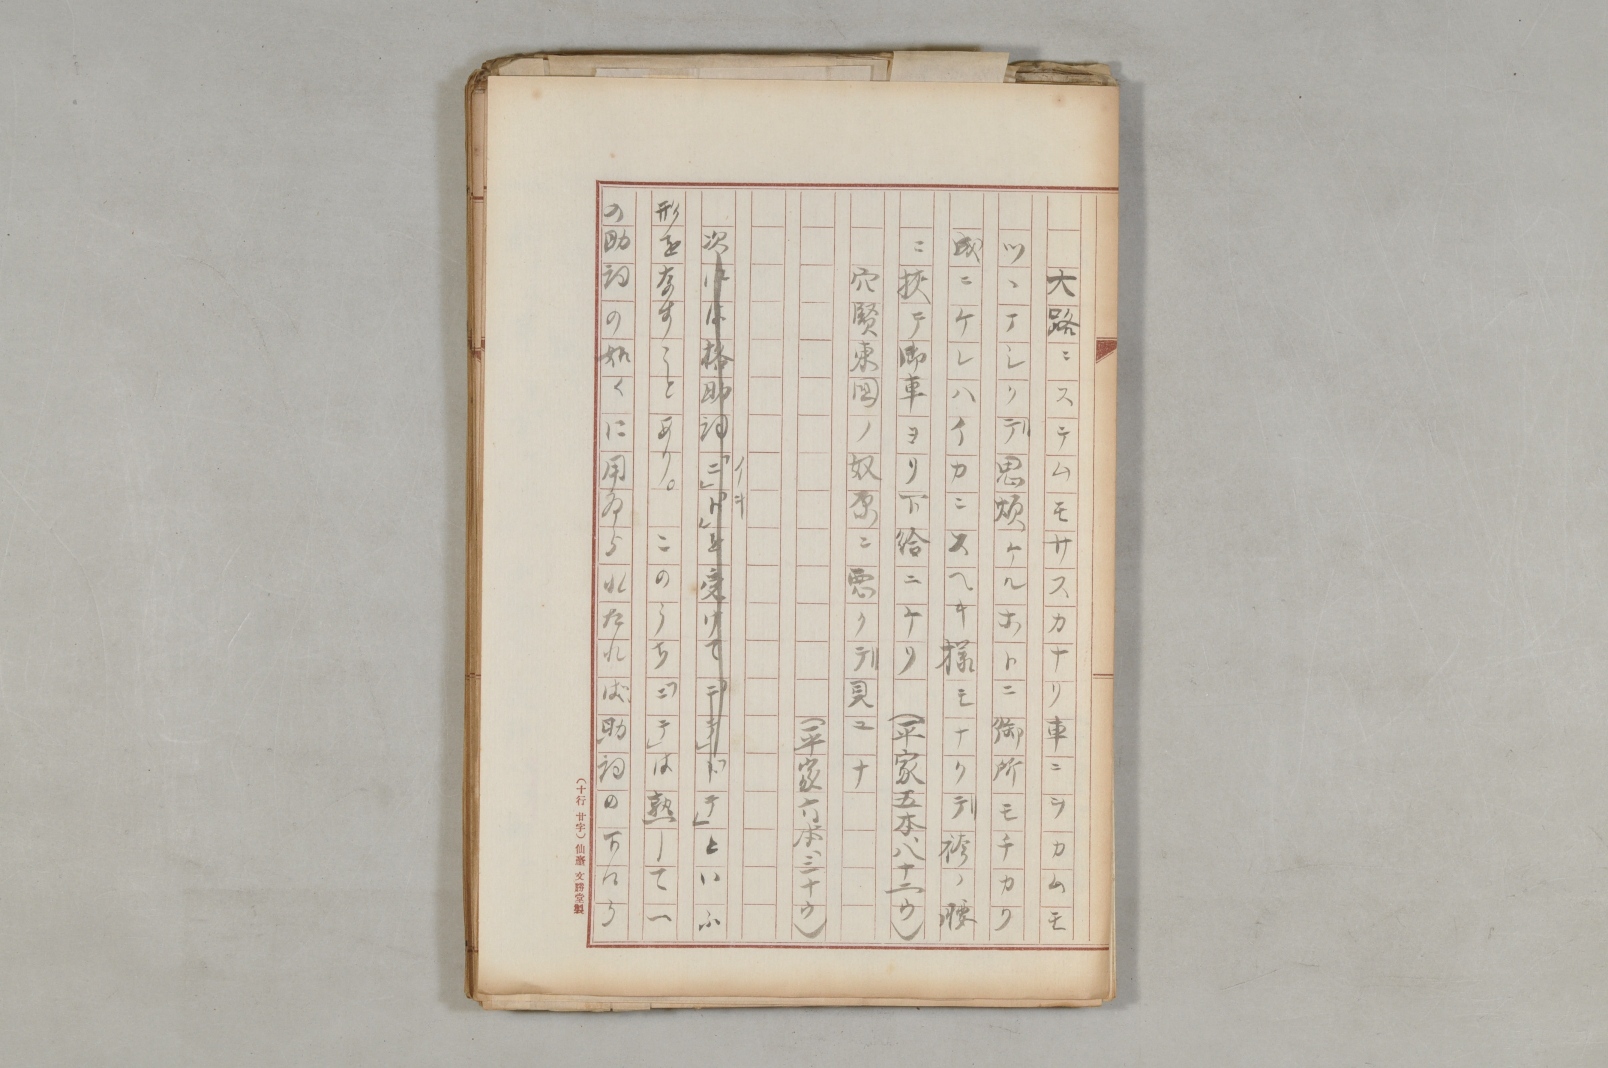 大路ニステムモサスカナリ車ニヲカムモ
ツヽマシクテ思煩ケルホトニ御所モチカク
成ニケレハイカニスヘキ様モナクテ袴ノ腰
ニ挟テ御車ヨリ下給ニケリ（平家五本、八十二ウ）
穴賢東国ノ奴原ニ悪クテ見ユナ
（平家六本、三十ウ）
次には格助詞「ニ」「ト」を受けて「ニテ」「トテ」といふ
イキ
形をなすことあり。このうち「ニテ」は熟して一
の助詞の如くに用ゐられたれば助詞の下にう
（十行 廿字）仙臺 文勝堂製